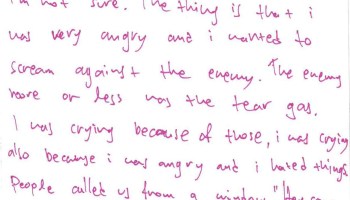 I'm not sure. The thing is that i
was very angry and i wanted to
scream against the enemy. The enemy
more or less was the tear gas.
I was crying because of those, i was crying
also because i was angry and i hated things.
People called us from a window "Hey